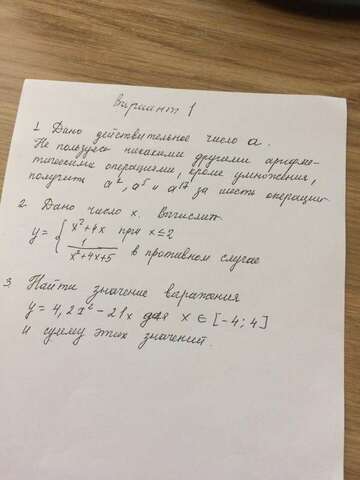 Вариант 1
1. Дано действительное число a.
Не пользуясь никакими другими арифме-
тическими операциями, кроме умножения,
получить a², a⁵ и a¹⁷ за шесть операций.
2. Дано число x. Вычислить
y = { x² + 4x при x ≤ 2
1/(x² + 4x + 5) в противном случае
3 Найти значение выражения
y = 4,2x² - 21x для x ∈ [-4; 4]
и сумму этих значений.